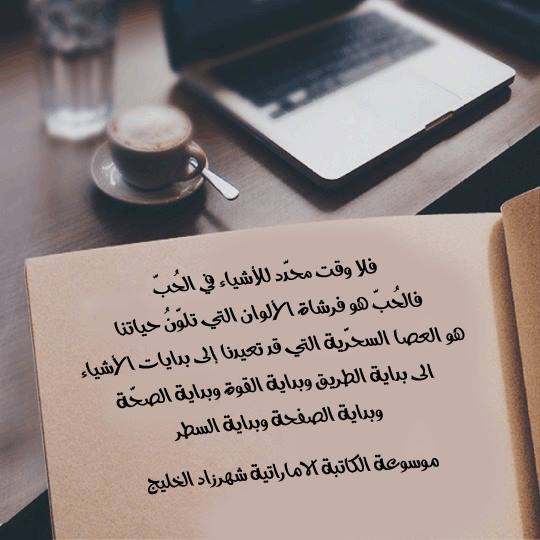 فلا وقت محدّد للأشياء في الحُبّ
فالحُبّ هو فرشاة الألوان التي تلوّنُ حياتنا
هو العصا السحرّية التي قد تعيدنا إلى بدايات الأشياء
الى بداية الطريق وبداية القوة وبداية الصحّة
وبداية الصفحة وبداية السطر
موسوعة الكاتبة الاماراتية شهرزاد الخليج